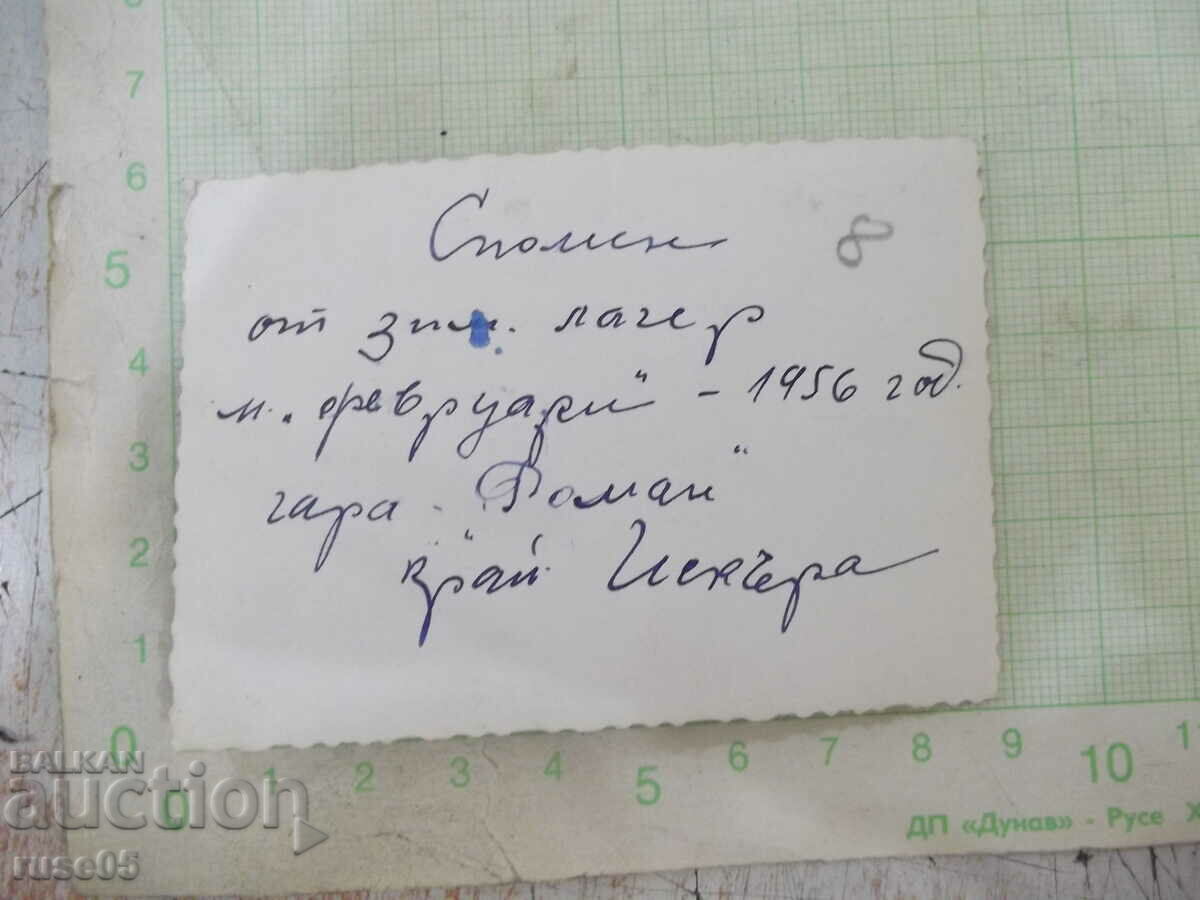 Спомен
8
от зим. лагер
м. „февруари" - 1956 год.
гара „Роман"
край Искъра
8
7
6
5
4
3
2
1
0
0
1
2
3
4
5
6
7
8
9
10
1
ДП «Дунав» - Русе Х
BALKAN
auction
ruse05